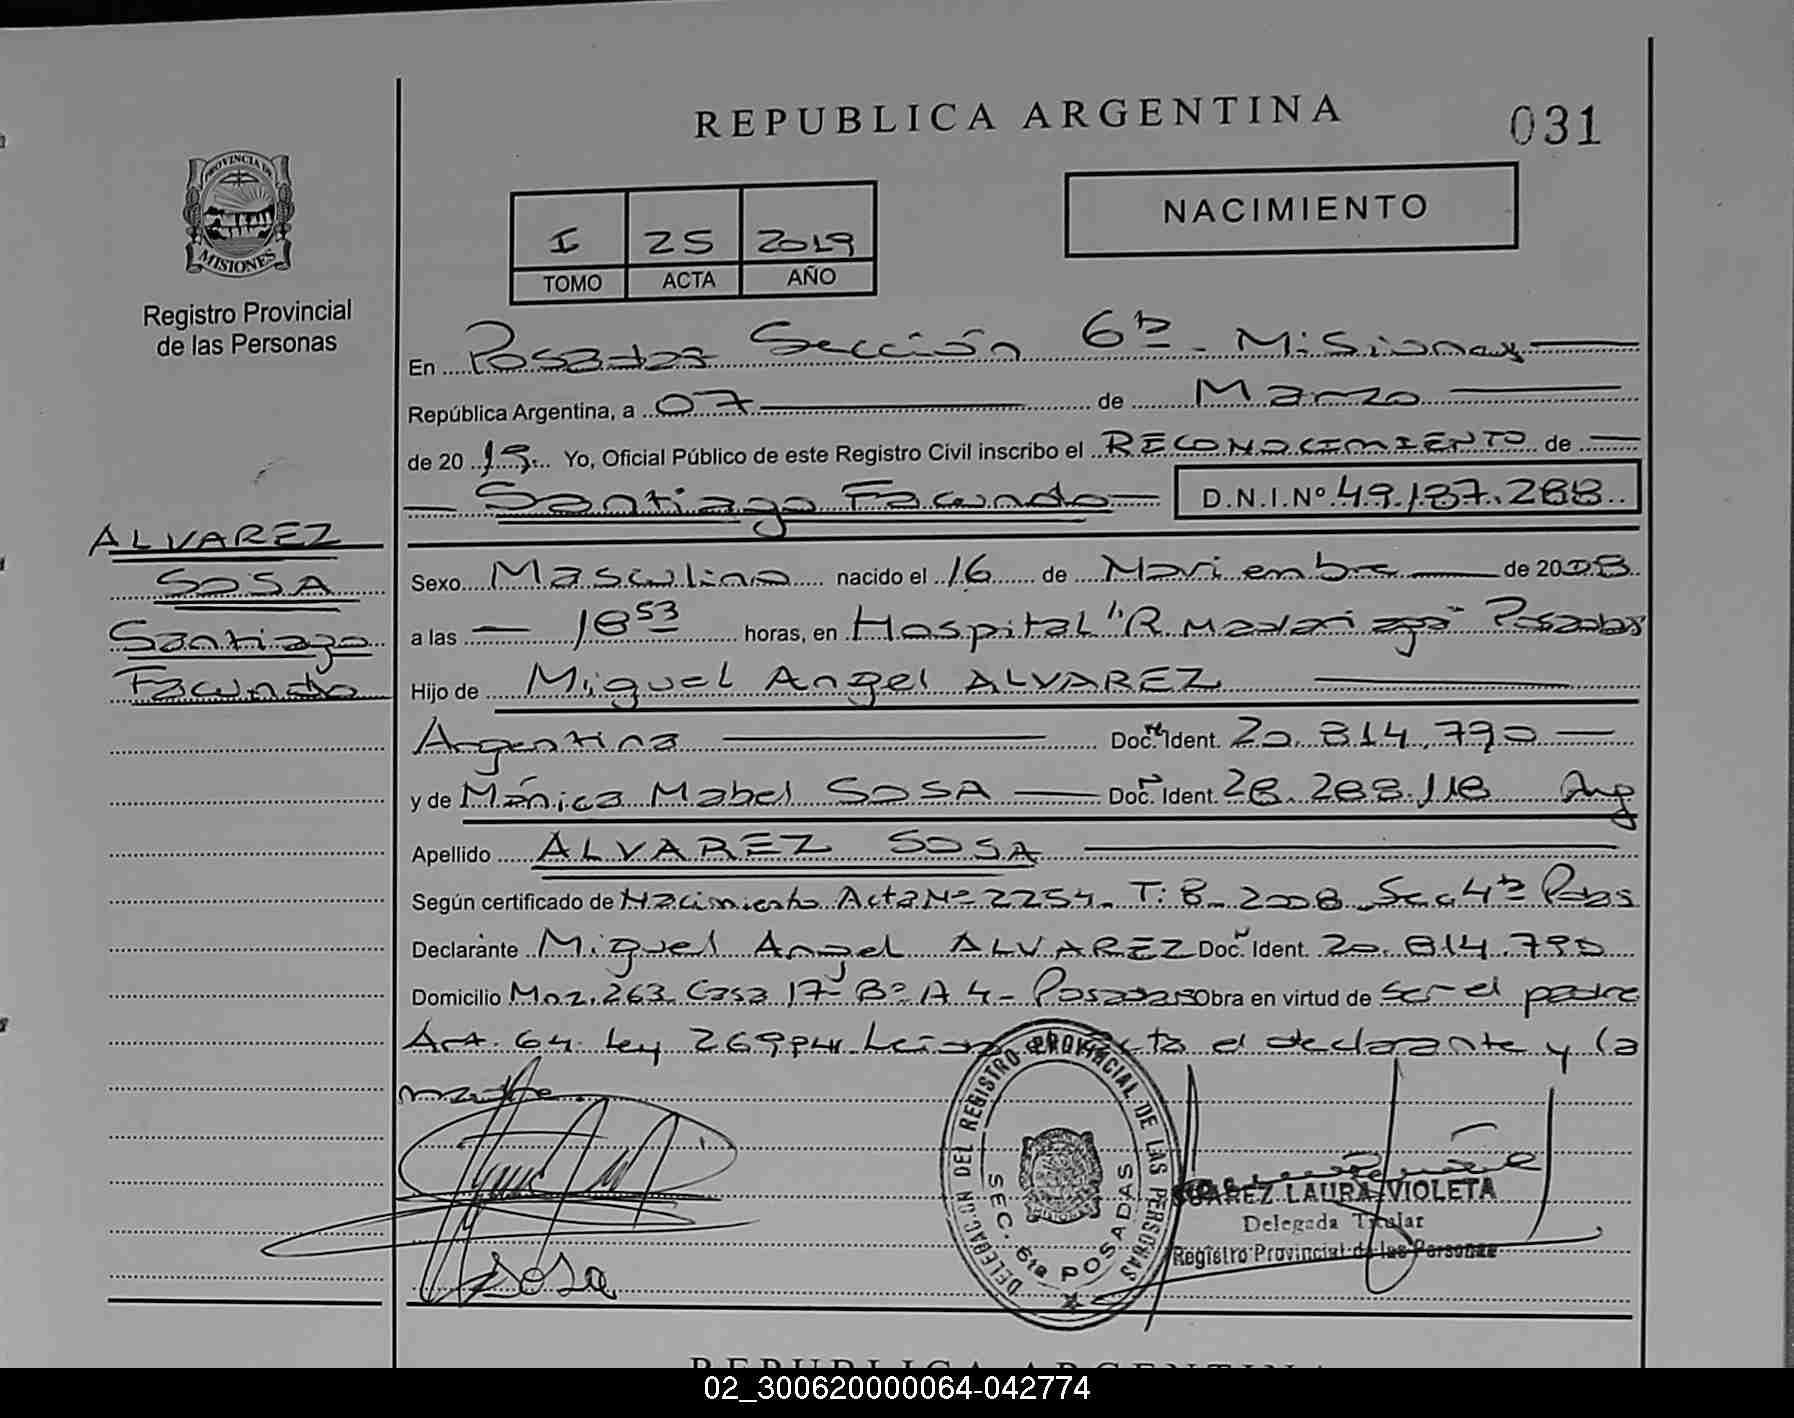 REPUBLICA ARGENTINA
031
PROVINCIA DE
MISIONES
Registro Provincial
de las Personas
NACIMIENTO
I 25 2019
TOMO ACTA AÑO
En Posadas Sección 6ta - Misiones
República Argentina, a 07 de Marzo
de 2019. Yo, Oficial Público de este Registro Civil inscribo el RECONOCIMIENTO de
Santiago Facundo D.N.I.Nº 49.187.288
ALVAREZ
SOSA
Santiago
Facundo
Sexo Masculino nacido el 16 de Noviembre de 2008
a las 18 53 horas, en Hospital "R. Madariaga" Posadas
Hijo de Miguel Angel ALVAREZ
Argentina Doc. Ident. 20.814.790
y de Mónica Mabel SOSA Doc. Ident. 28.288.118 Arg
Apellido ALVAREZ SOSA
Según certificado de Nacimiento Acta Nº 2254. T: 8 - 2008 - Sec 4ta Pdas
Declarante Miguel Angel ALVAREZ Doc. Ident. 20.814.790
Domicilio Mnz. 263 Casa 17 Bº A 4 - Posadas Obra en virtud de ser el padre
Art. 64 Ley 26994. Leída el Acta el declarante y la
madre.
Sosa
DELEGAC.ON DEL REGISTRO PROVINCIAL DE LAS PERSONAS
SEC. 6ta POSADAS
SUAREZ LAURA VIOLETA
Delegada Titular
Registro Provincial de las Personas
REPUBLICA ARGENTINA
02_300620000064-042774